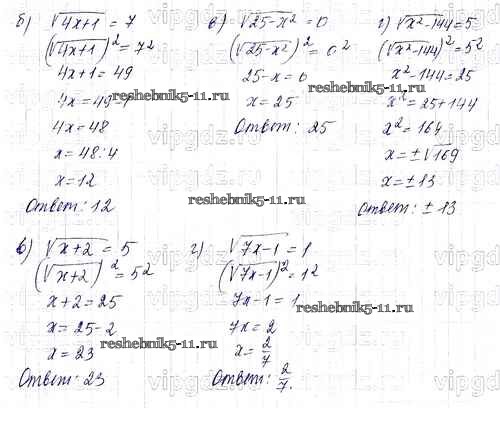 б) √4x+1 = 7
(√4x+1)² = 7²
4x+1 = 49
4x = 49-1
4x = 48
x = 48:4
x = 12
Ответ: 12
в) √25-x² = 0
(√25-x²)² = 0²
25-x = 0
x = 25
Ответ: 25
г) √x²-144 = 5
(√x²-144)² = 5²
x²-144 = 25
x² = 25+144
x² = 164
x = ±√169
x = ±13
Ответ: ±13
в) √x+2 = 5
(√x+2)² = 5²
x+2 = 25
x = 25-2
x = 23
Ответ: 23
г) √7x-1 = 1
(√7x-1)² = 1²
7x-1 = 1
7x = 2
x = 2/7
Ответ: 2/7.
reshebnik5-11.ru
reshebnik5-11.ru
reshebnik5-11.ru
reshebnik5-11.ru
reshebnik5-11.ru